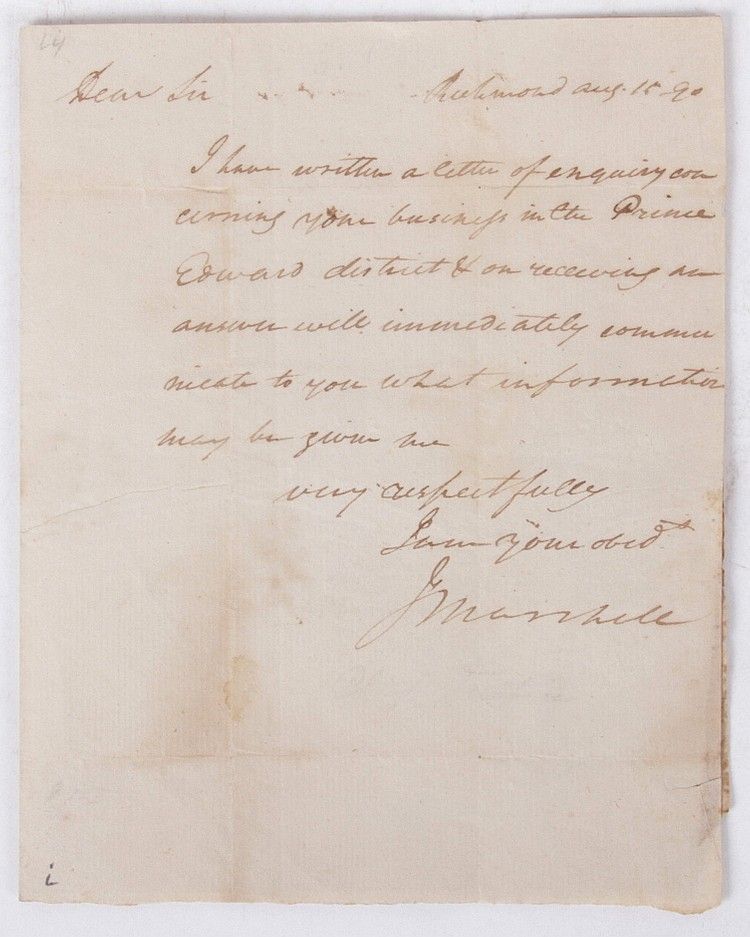 Dear Sir Richmond Aug. 15 90
I have written a letter of enquiry con
cerning your business in the Prince
Edward district & on receiving an
answer will immediately commu
nicate to you what information
may be given me
very respectfully
I am your obedt
J Marshall